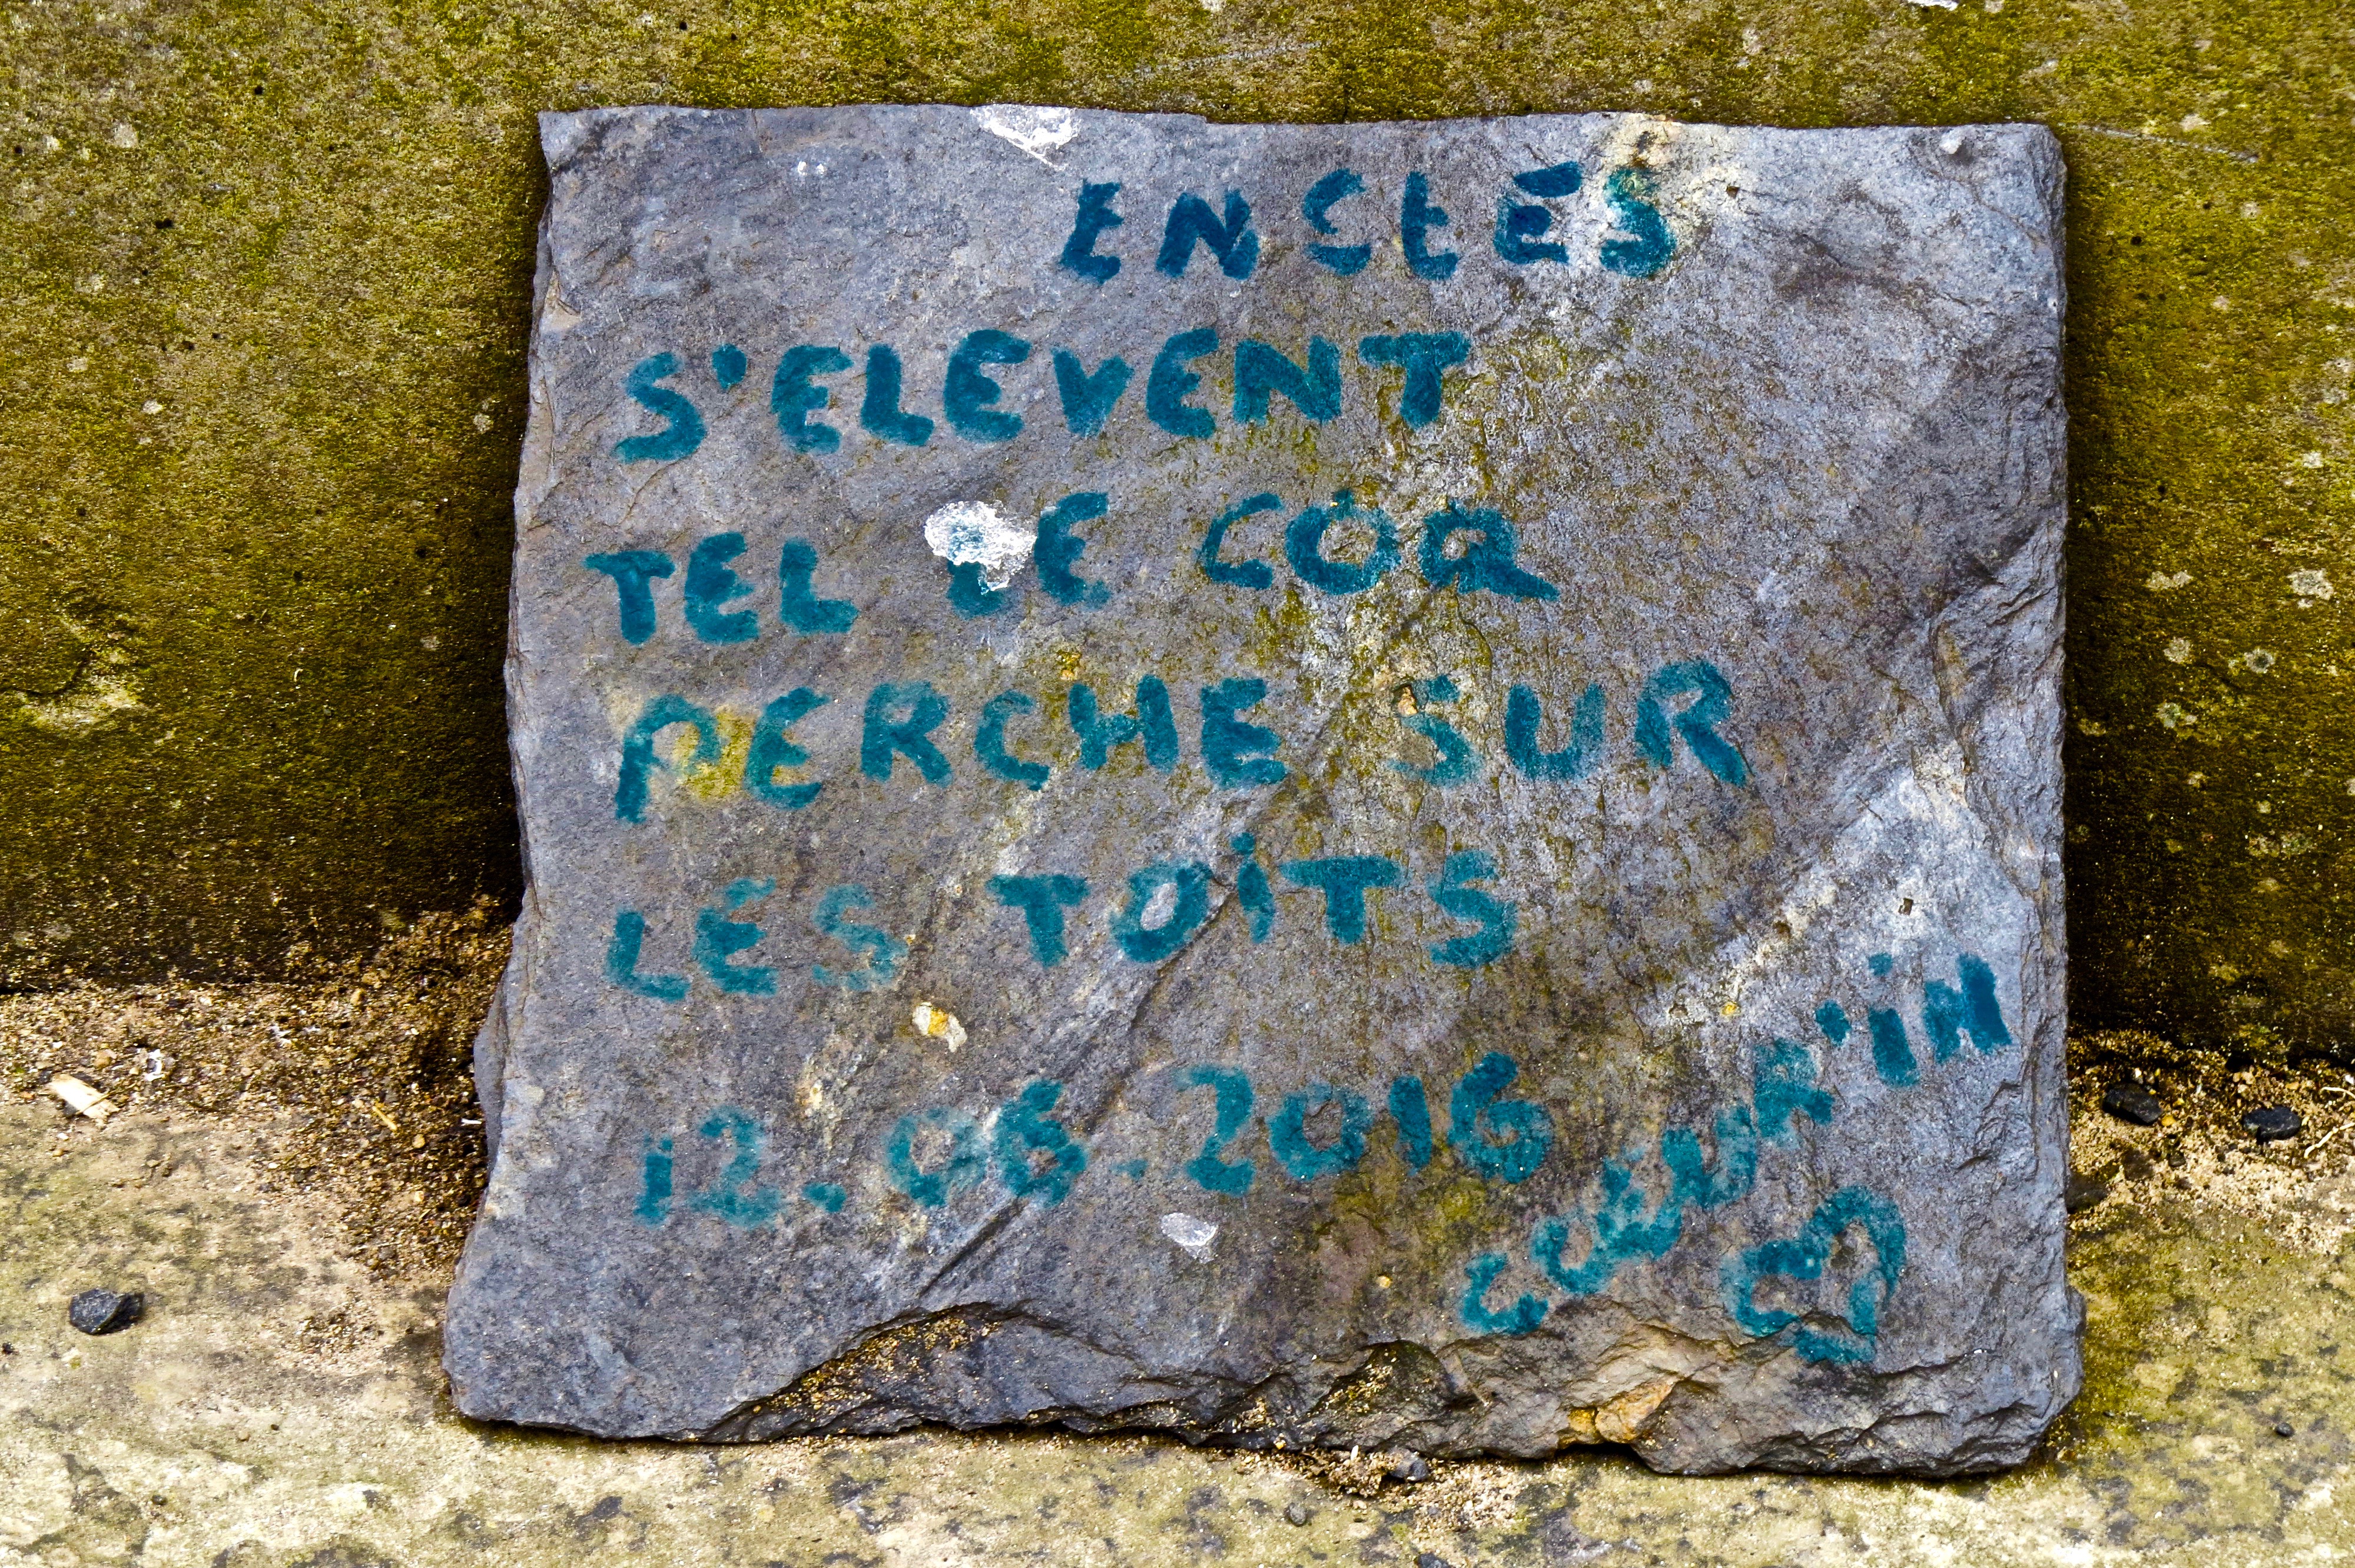 S'ELEVENT
TEL LE COQ
PERCHE SUR
LES TOiTS
12.06.2016
COEUR'iN